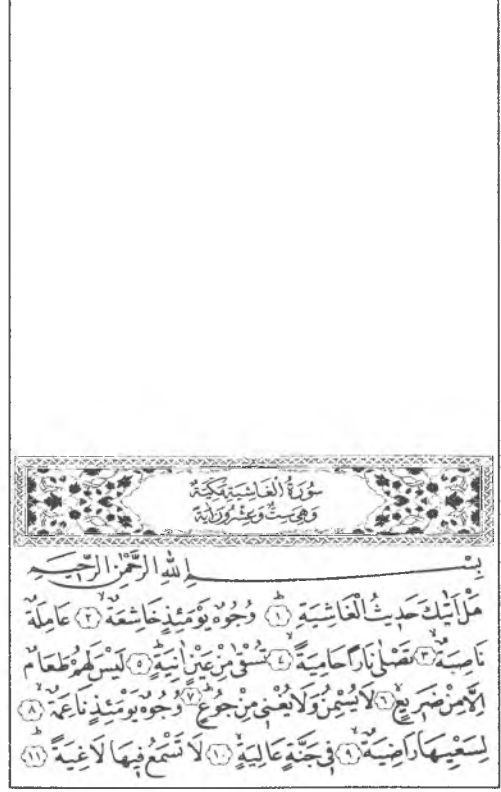 سُورَةُ الْغَاشِيَةِ مَكِّيَّةٌ
وَهِيَ سِتٌّ وَعِشْرُونَ اٰيَةً
بِسْمِ اللّٰهِ الرَّحْمٰنِ الرَّحِيمِ
هَلْ اَتٰيكَ حَد۪يثُ الْغَاشِيَةِۜ ﴿١﴾ وُجُوهٌ يَوْمَئِذٍ خَاشِعَةٌۙ ﴿٢﴾ عَامِلَةٌ
نَاصِبَةٌۙ ﴿٣﴾ تَصْلٰى نَارًا حَامِيَةًۙ ﴿٤﴾ تُسْقٰى مِنْ عَيْنٍ اٰنِيَةٍۜ ﴿٥﴾ لَيْسَ لَهُمْ طَعَامٌ
اِلَّا مِنْ ضَر۪يعٍۙ ﴿٦﴾ لَا يُسْمِنُ وَلَا يُغْن۪ي مِنْ جُوعٍۜ ﴿٧﴾ وُجُوهٌ يَوْمَئِذٍ نَاعِمَةٌۙ ﴿٨﴾
لِسَعْيِهَا رَاضِيَةٌۙ ﴿٩﴾ ف۪ي جَنَّةٍ عَالِيَةٍۙ ﴿١٠﴾ لَا تَسْمَعُ ف۪يهَا لَاغِيَةًۜ ﴿١١﴾